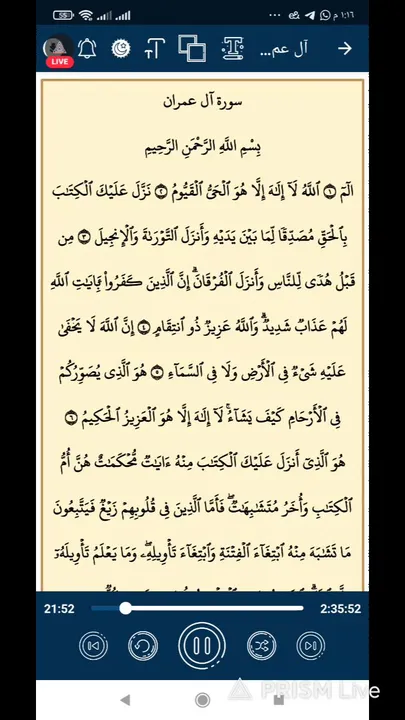 55
١:١٦ م
آل عم...
LIVE
سورة آل عمران
بِسْمِ اللَّهِ الرَّحْمَٰنِ الرَّحِيمِ
الٓمٓ ١ اللَّهُ لَآ إِلَٰهَ إِلَّا هُوَ الْحَىُّ الْقَيُّومُ ٢ نَزَّلَ عَلَيْكَ الْكِتَٰبَ
بِالْحَقِّ مُصَدِّقًا لِّمَا بَيْنَ يَدَيْهِ وَأَنزَلَ التَّوْرَىٰةَ وَالْإِنجِيلَ ٣ مِن
قَبْلُ هُدًى لِّلنَّاسِ وَأَنزَلَ الْفُرْقَانَ ۗ إِنَّ الَّذِينَ كَفَرُوا۟ بِـَٔايَٰتِ اللَّهِ
لَهُمْ عَذَابٌ شَدِيدٌ ۗ وَاللَّهُ عَزِيزٌ ذُو انتِقَامٍ ٤ إِنَّ اللَّهَ لَا يَخْفَىٰ
عَلَيْهِ شَىْءٌ فِى الْأَرْضِ وَلَا فِى السَّمَآءِ ٥ هُوَ الَّذِى يُصَوِّرُكُمْ
فِى الْأَرْحَامِ كَيْفَ يَشَآءُ ۚ لَآ إِلَٰهَ إِلَّا هُوَ الْعَزِيزُ الْحَكِيمُ ٦
هُوَ الَّذِىٓ أَنزَلَ عَلَيْكَ الْكِتَٰبَ مِنْهُ ءَايَٰتٌ مُّحْكَمَٰتٌ هُنَّ أُمُّ
الْكِتَٰبِ وَأُخَرُ مُتَشَٰبِهَٰتٌ ۖ فَأَمَّا الَّذِينَ فِى قُلُوبِهِمْ زَيْغٌ فَيَتَّبِعُونَ
مَا تَشَٰبَهَ مِنْهُ ابْتِغَآءَ الْفِتْنَةِ وَابْتِغَآءَ تَأْوِيلِهِۦ ۗ وَمَا يَعْلَمُ تَأْوِيلَهُۥٓ
21:52
2:35:52
PRISM Live